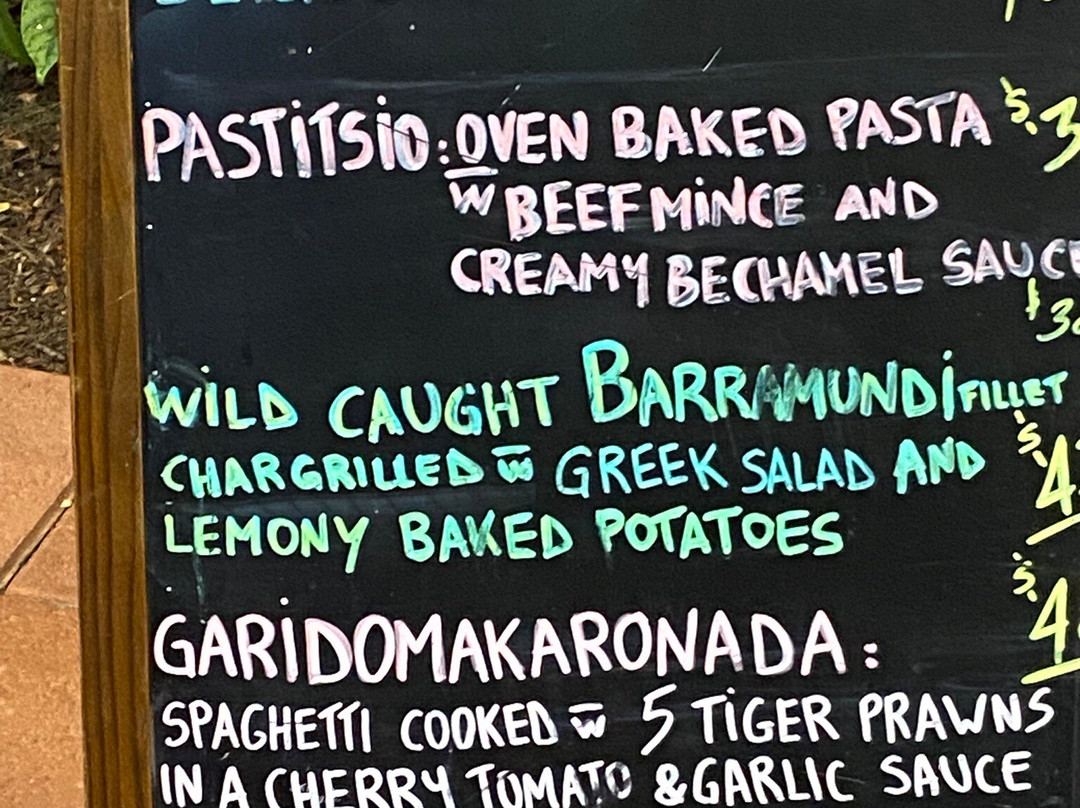 PASTITSIO: OVEN BAKED PASTA $.3
w BEEF MINCE AND
CREAMY BECHAMEL SAUCE
$3
WILD CAUGHT BARRAMUNDI FILLET
CHARGRILLED w̅ GREEK SALAD AND $4
LEMONY BAKED POTATOES
GARIDOMAKARONADA: $.4
SPAGHETTI COOKED w̅ 5 TIGER PRAWNS
IN A CHERRY TOMATO & GARLIC SAUCE